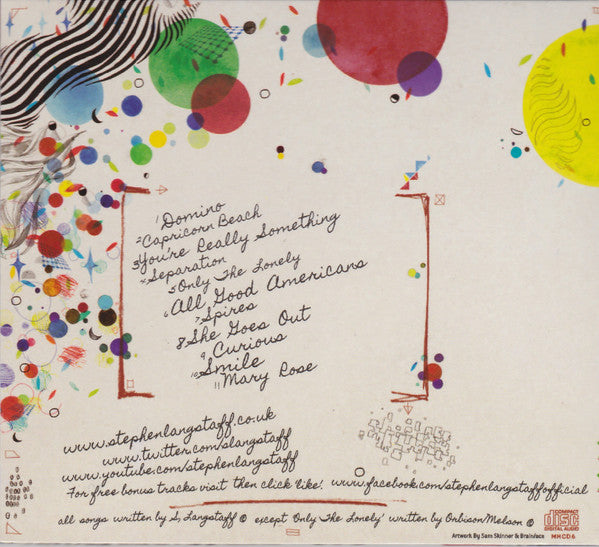 1 Domino
2 Capricorn Beach
3 You're Really Something
4 Separation
5 Only The Lonely
6 All Good Americans
7 Spires
8 She Goes Out
9 Curious
10 Smile
11 Mary Rose
www.stephenlangstaff.co.uk
www.twitter.com/slangstaff
www.youtube.com/stephenlangstaff
For free bonus tracks visit then click 'like' www.facebook.com/stephenlangstaffofficial
all songs written by S, Langstaff © except 'Only The Lonely' written by Orbison/Melson ©
COMPACT
disc
DIGITAL AUDIO
Artwork By Sam Skinner & Brainface
MHCD6